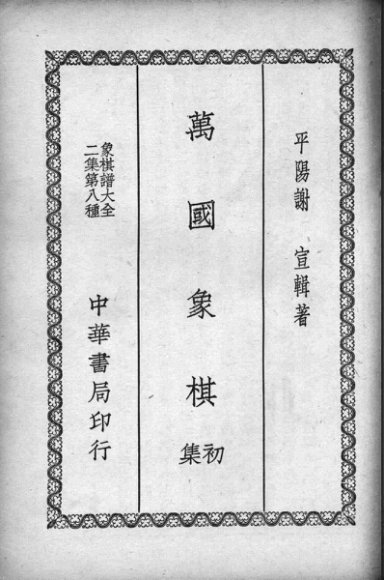 平陽謝宣輯著
萬國象棋
初集
象棋譜大全
二集第八種
中華書局印行